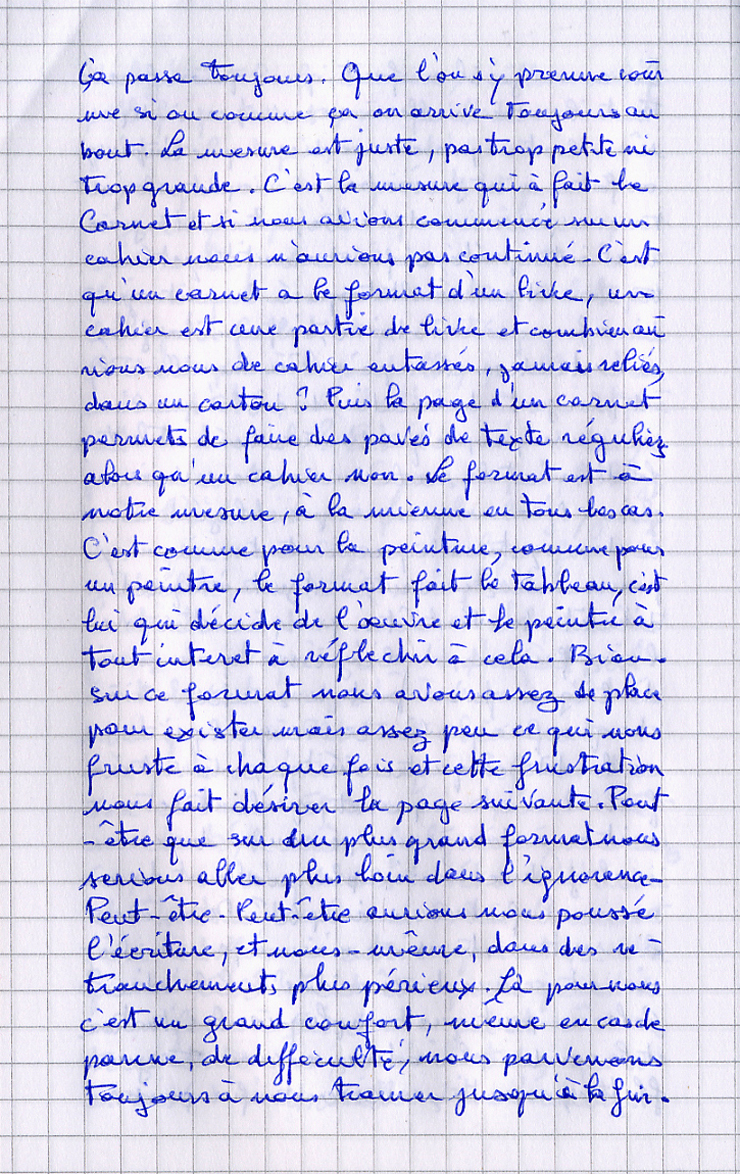 Ça passe toujours. Que l'on s'y prenne com
me si ou comme ça on arrive toujours au
bout. La mesure est juste, pas trop petite ni
trop grande. C'est la mesure qui à fait le
Carnet et si nous avions commencé sur un
cahier nous n'aurions pas continué. C'est
qu'un carnet a le format d'un livre, un
cahier est une partie de livre et combien au
rions nous de cahier entassés, jamais reliés,
dans un carton ? Puis la page d'un carnet
permets de faire des pavés de texte réguliez
alors qu'un cahier non. Le format est à
notre mesure, à la mienne en tous les cas.
C'est comme pour la peinture, comme pour
un peintre, le format fait le tableau, c'est
lui qui décide de l'œuvre et le peintre à
tout interet à réflechir à cela. Bien.
Sur ce format nous avons assez de place
pour exister mais assez peu ce qui nous
fruste à chaque fois et cette frustration
nous fait désirer la page suivante. Peut
-être que sur du plus grand format nous
serions aller plus loin dans l'ignorance
Peut-être. Peut-être aurions nous poussé
l'écriture, et nous-même, dans des re-
tranchements plus périeux. Là pour nous
c'est un grand confort, même en cas de
panne, de difficulté, nous parvenons
toujours à nous trainer jusqu'à la fin.